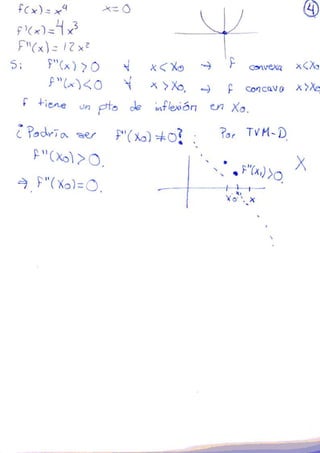 f(x) = x⁴ x=0 ④
f'(x) = 4x³
f''(x) = 12x²
Si f''(x) > 0 ∀ x < x₀ → f convexa x<x₀
f''(x) < 0 ∀ x > x₀, → f concava x>x₀
f tiene un pto de inflexión en x₀.
¿Podría ser f''(x₀) ≠ 0? : Por TVM-D,
f''(x₀) > 0.
f''(x₀) > 0 X
⇒ f''(x₀) = 0.
x₀ x